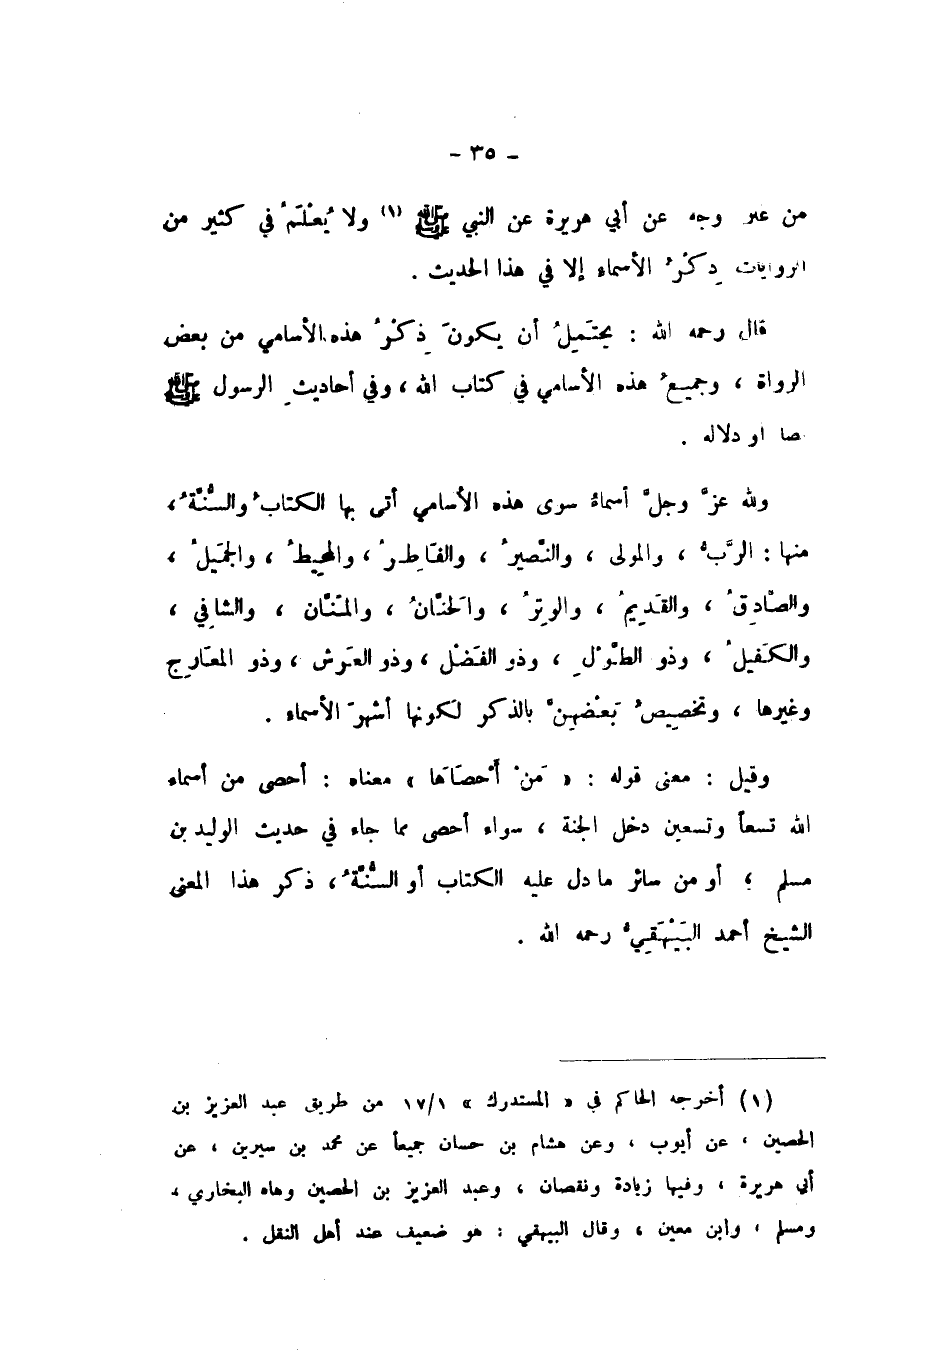 - ٣٥ -
من غير وجه عن أبي هريرة عن النبي ﷺ (١) ولا يُعْلَمُ في كثير من
الروايات ذِكْرُ الأسماء إلا في هذا الحديث .
قال رحمه الله : يحتَمِلُ أن يكونَ ذِكْرُ هذه الأسامي من بعض
الرواة ، وجميعُ هذه الأسامي في كتاب الله ، وفي أحاديثِ الرسول ﷺ
أو دلالة .
ولله عزَّ وجلَّ أسماءُ سوى هذه الأسامي أتى بها الكتابُ والسُّنَّةُ ،
منها : الرَّبُّ ، والمولى ، والنَّصيرُ ، والفَاطِرُ ، والمحيطُ ، والجَميلُ ،
والصَّادِقُ ، والقَدِيمُ ، والوِترُ ، والحَنَّانُ ، والمَنَّان ، والشافي ،
والكَفيلُ ، وذو الطَّوْلِ ، وذو الفَضْل ، وذو العَرش ، وذو المعَارِج
وغيرها ، وتخصِيصُ بَعْضِهِنَّ بالذكر لَكونها أشهرَ الأسماء .
وقيل : معنى قوله : « مَنْ أَحْصَاهَا » معناه : أحصى من أسماء
الله تسعاً وتسعين دخل الجنة ، سواء أحصى مما جاء في حديث الوليد بن
مسلم ، أو من سائر ما دل عليه الكتاب أو السُّنَّةُ ، ذكر هذا المعنى
الشيخ أحمد البَيْهَقِيُّ رحمه الله .
(١) أخرجه الحاكم في « المستدرك » ١٧/١ من طريق عبد العزيز بن
الحصين ، عن أيوب ، وعن هشام بن حسان جميعاً عن محمد بن سيرين ، عن
أبي هريرة ، وفيها زيادة ونقصان ، وعبد العزيز بن الحصين وهاه البخاري ،
ومسلم ، وابن معين ، وقال البيهقي : هو ضعيف عند أهل النقل .